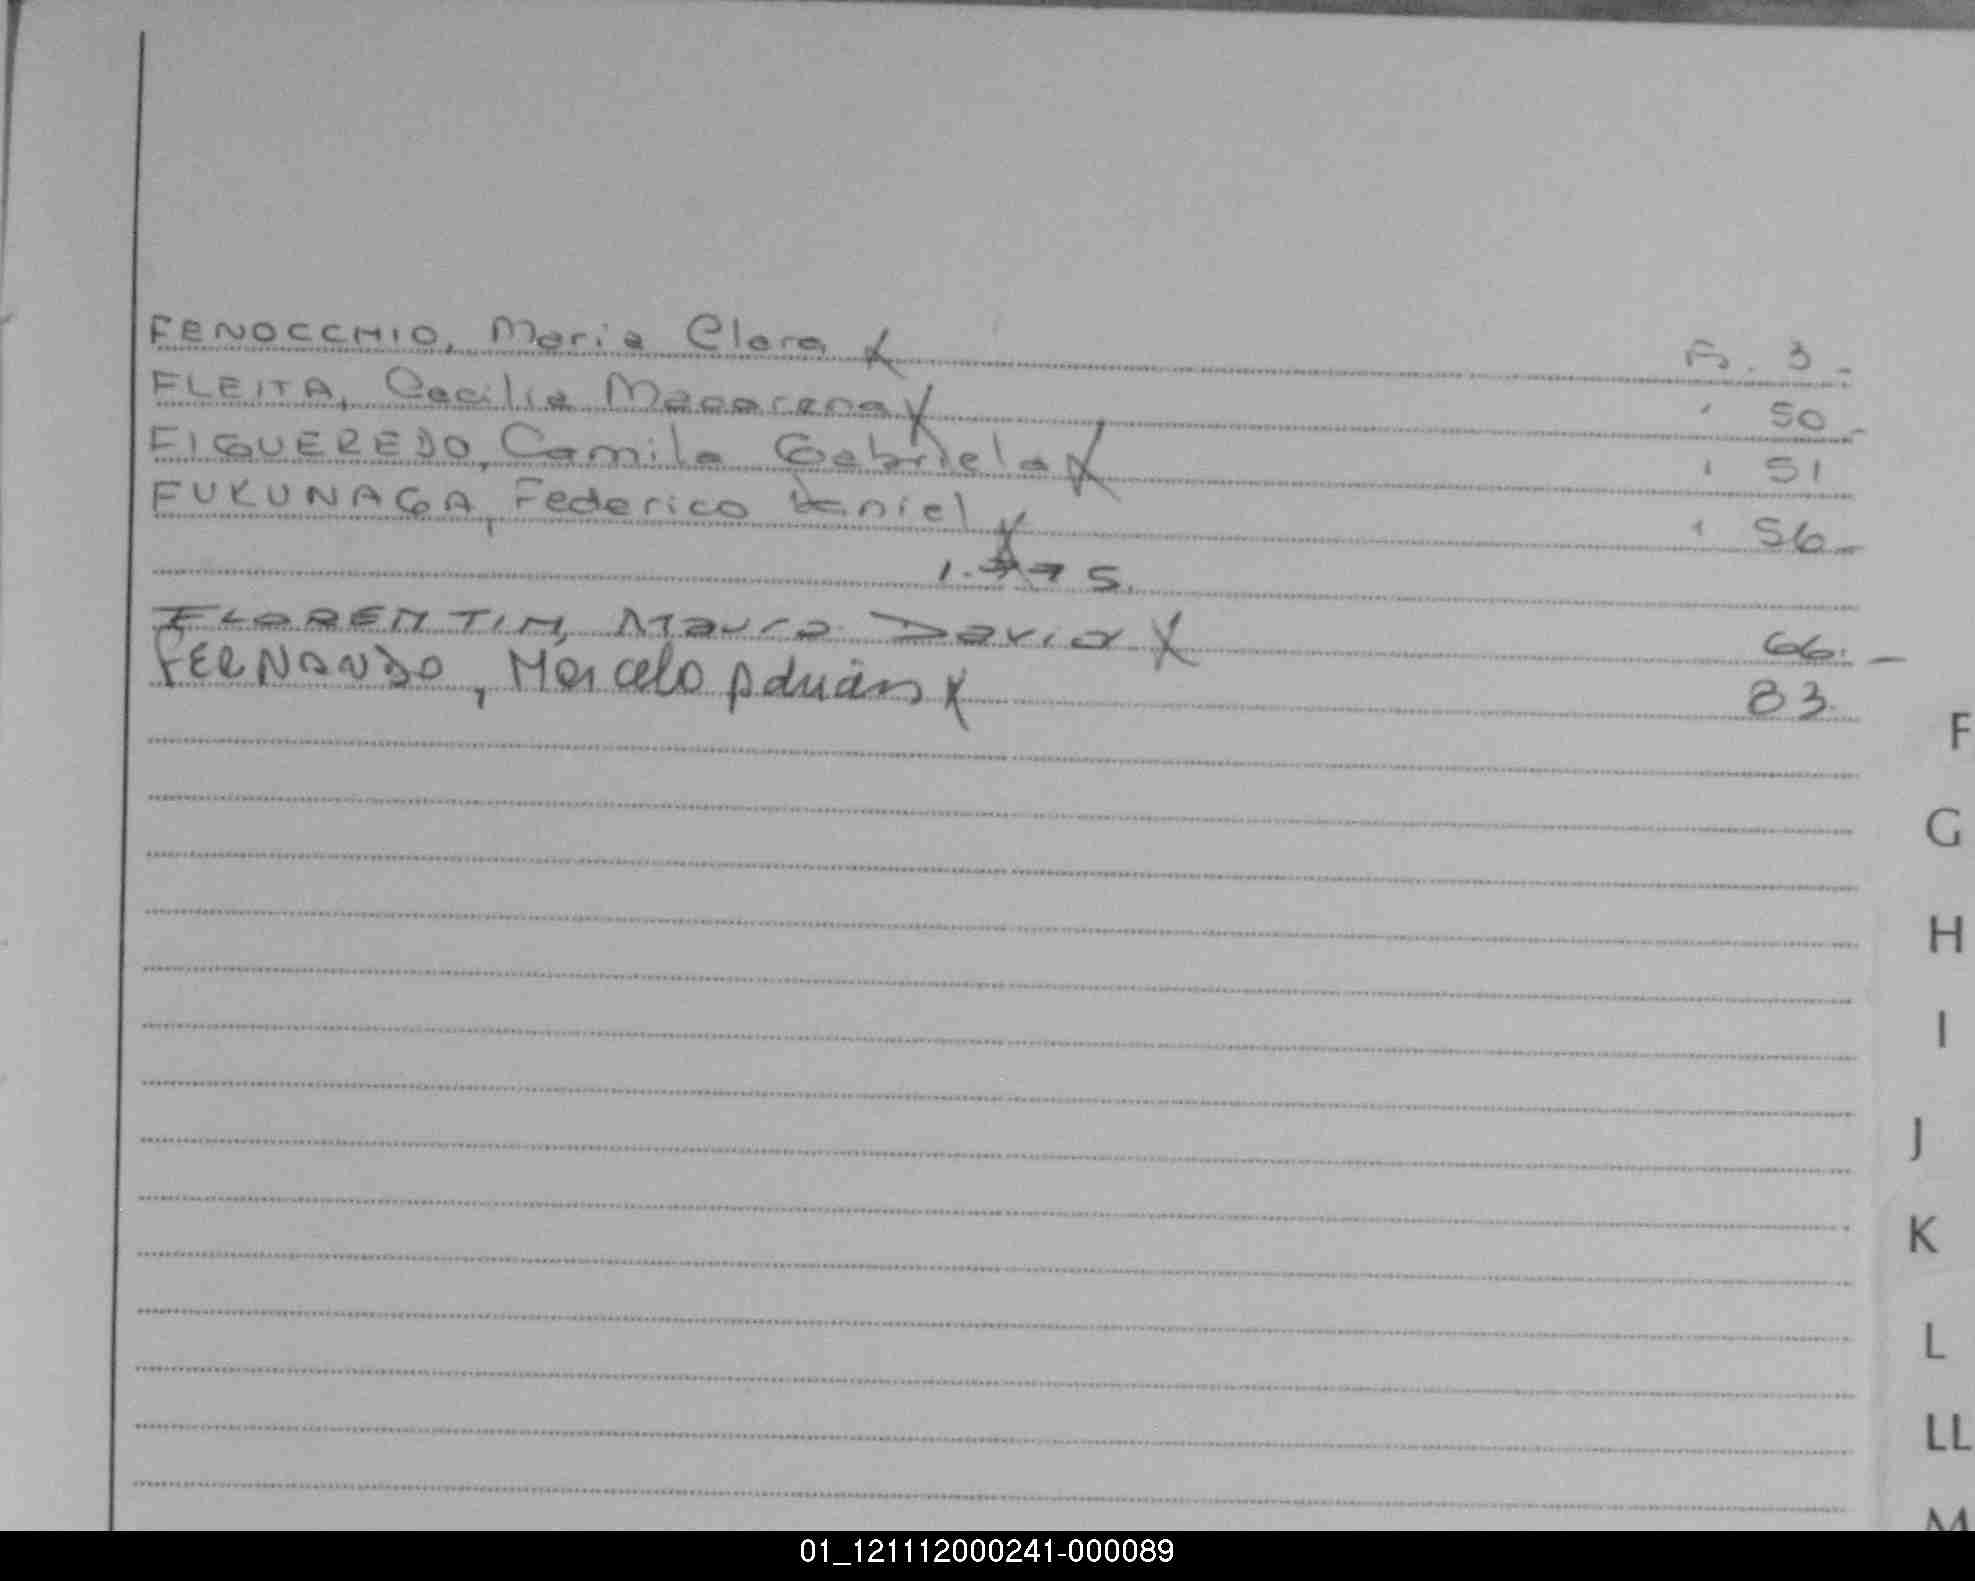 FENOCCHIO, Maria Clara X Fs. 3-
FLEITA, Cecilia Macarena X " 50-
FIGUEREDO, Camila Gabriela X " 51
FUKUNAGA, Federico Daniel X " 56-
1.995.
FLORENTIN, Mauro David X 66.-
FERNANDO, Marcelo Adrián X 83
F
G
H
I
J
K
L
LL
M
01_121112000241-000089